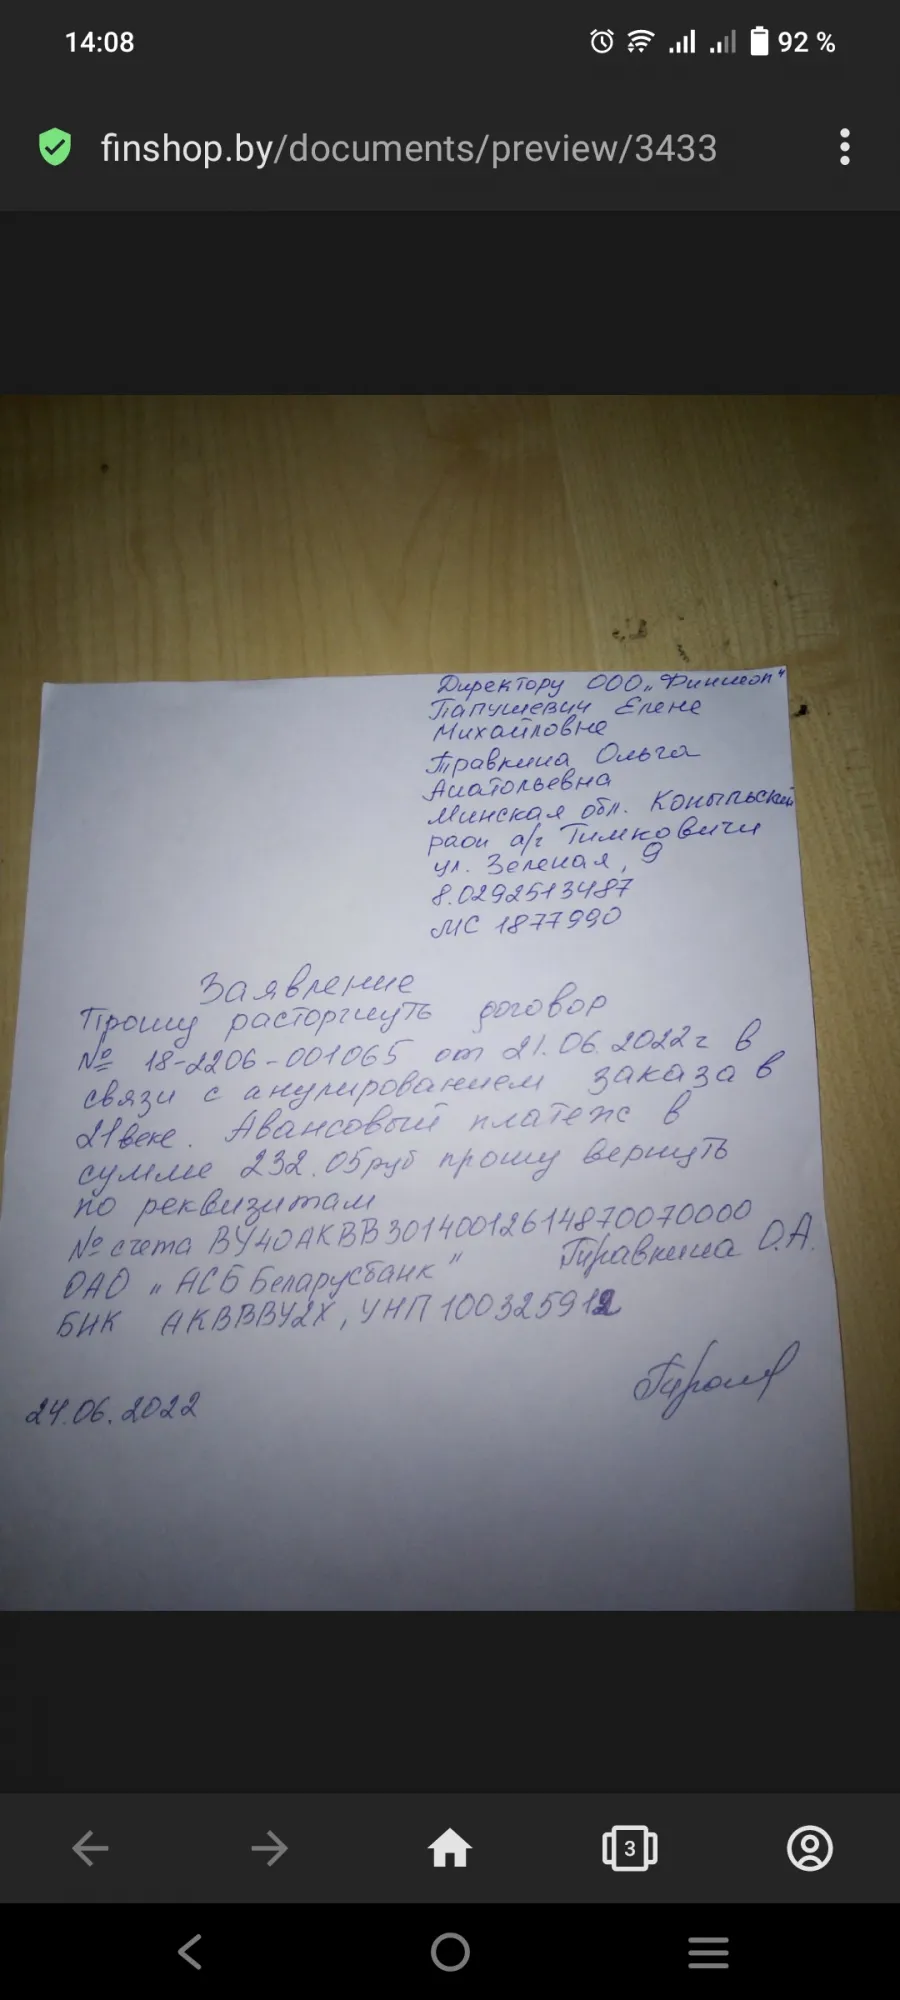 14:08
92 %
finshop.by/documents/preview/3433
Директору ООО „Финшоп"
Папушевич Елене
Михайловне
Травкина Ольга
Анатольевна
Минская обл. Копыльский
раон а/г Тимковичи
ул. Зеленая, 9
8.0292513487
МС 1877990
Заявление
Прошу расторгнуть договор
№ 18-2206-001065 от 21.06.2022г в
связи с анулированием заказа в
21веке. Авансовый платеж в
сумме 232.05руб прошу вернуть
по реквизитам
№ счета BY40AKBB30140012614870070000
ОАО „АСБ Беларусбанк" Травкина О.А.
БИК AKBBBY2X, УНП 100325912
24.06.2022
3